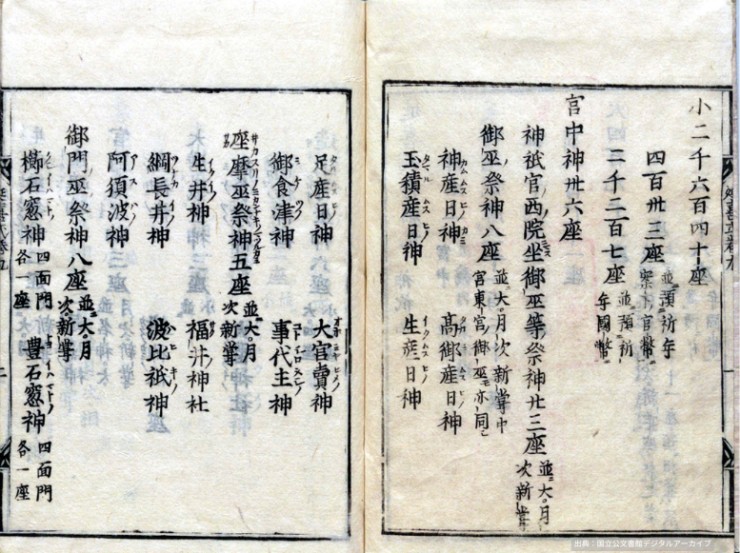 小二千六百四十座
四百卅三座 並預祈年
案下官幣
二千二百七座 並預祈
年國幣
宮中神卅六座
神祇官西院坐御巫等祭神廿三座 並大月
次新嘗
御巫祭神八座 並大月次新嘗中
宮東宮御巫亦同
神産日神 高御産日神
玉積産日神 生産日神
足産日神 大宮賣神
御食津神 事代主神
座摩巫祭神五座 並大月
次新嘗
生井神 福井神社
綱長井神 波比祇神
阿須波神
御門巫祭神八座 並大月
次新嘗
櫛石窓神 四面門
各一座 豊石窓神 四面門
各一座
出典：国立公文書館デジタルアーカイブ